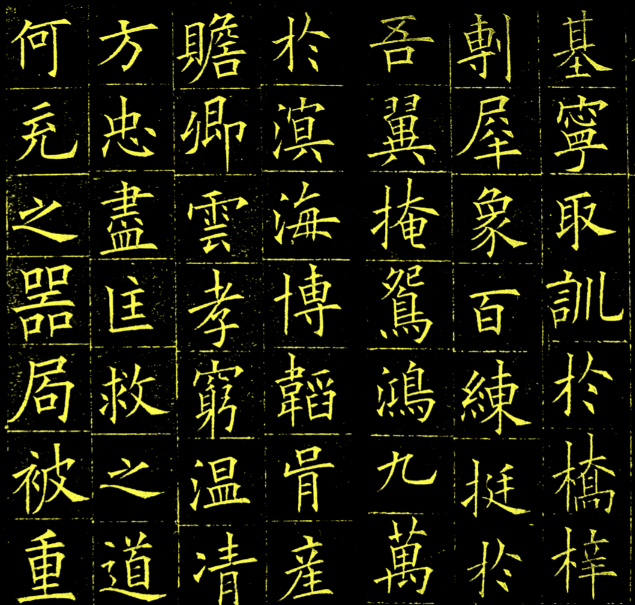 基寧取訓於橋梓
剸犀象百練挺於
吾翼掩鴛鴻九萬
於溟海博韜產
贍卿雲孝窮温凊
方忠盡匡救之道
何充之器局被重